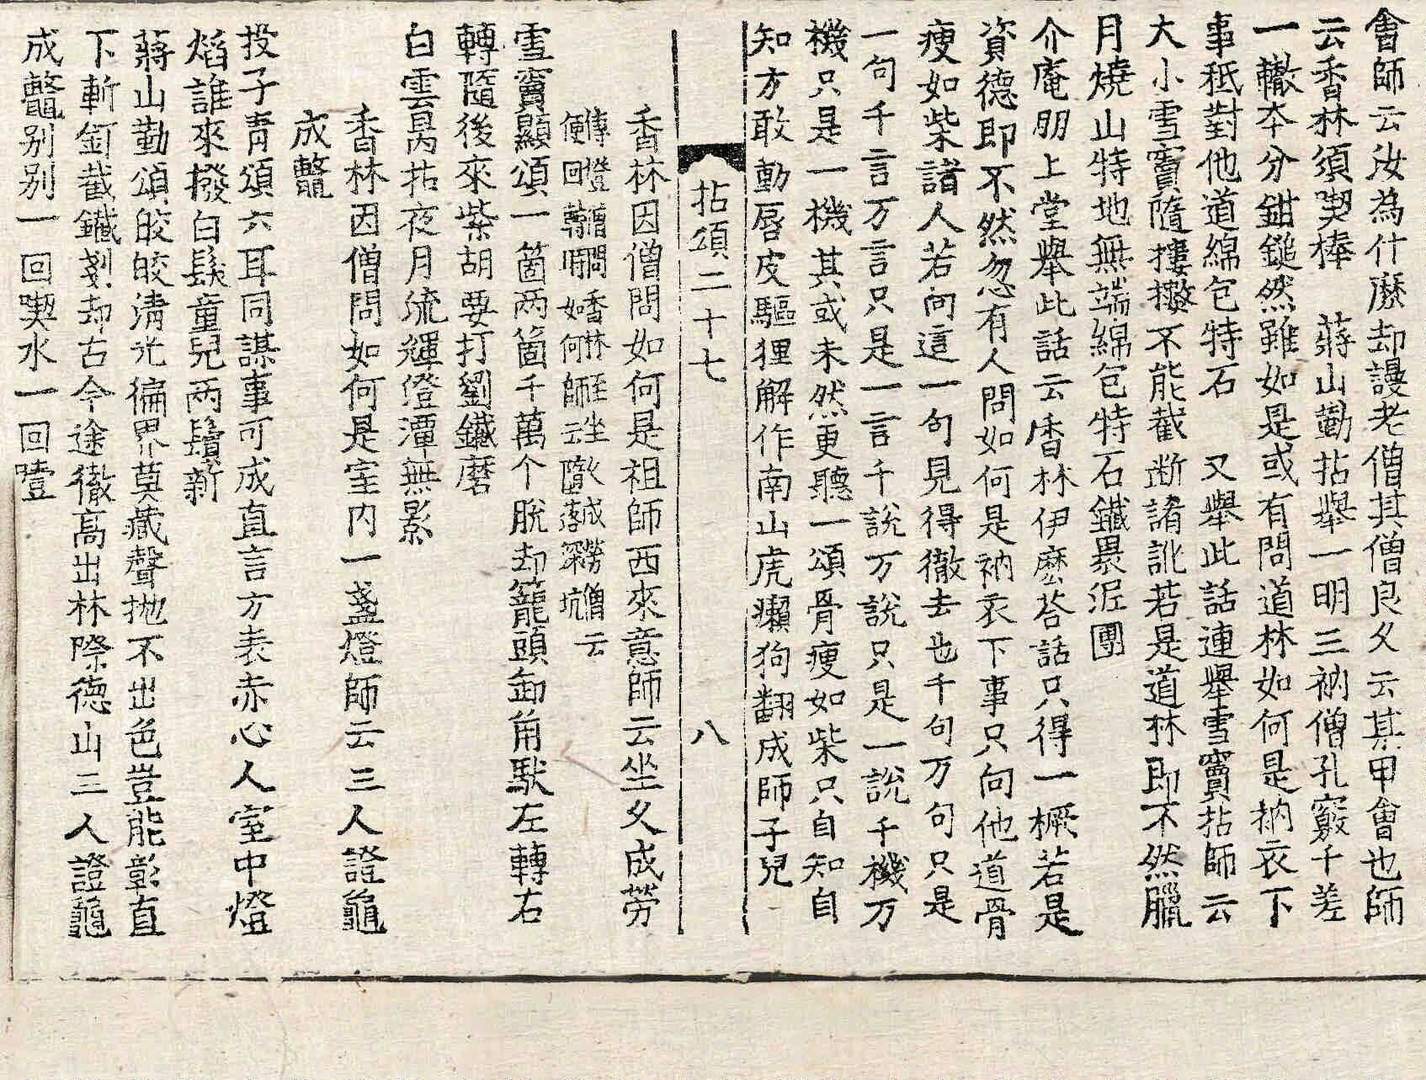 會師云汝為什麽却謾老僧其僧良久云某甲會也師
云香林須喫棒　蔣山勤拈舉一明三衲僧孔竅千差
一轍夲分鉗鎚然雖如是或有問道林如何是衲衣下
事秪對他道綿包特石　又舉此話連舉雪竇拈師云
大小雪竇隨摟摗不能截断誵訛若是道林即不然臘
月燒山特地無端綿包特石鐵褁泥團
介庵朋上堂舉此話云香林伊麽荅話只得一橛若是
資德即不然忽有人問如何是衲衣下事只向他道骨
瘦如柴諸人若向這一句見得徹去也千句万句只是
一句千言万言只是一言千說万說只是一說千機万
機只是一機其或未然更聽一頌骨瘦如柴只自知自
知方敢動唇皮驅狸解作南山虎獺狗翻成師子兒
拈頌二十七　八
香林因僧問如何是祖師西來意師云坐久成勞
傳燈僧問香林至坐久成勞僧云
便回首時如何師云墮落深坑
雪竇顯頌一箇两箇千萬个脫却籠頭卸角馱左轉右
轉隨後來柴胡要打劉鐵磨
白雲昺拈夜月流輝澄潭無影
香林因僧問如何是室内一盞燈師云三人證龜
成鼈
投子青頌六耳同謀事可成直言方表赤心人室中燈
熖誰來撥白髮童兒两鬢新
蔣山勤頌皎皎清光徧界莫藏聲拋不出色豈能彰直
下斬釘截鐵剗却古今途徹高出林際徳山三人證龜
成鼈别别一回喫水一回噎